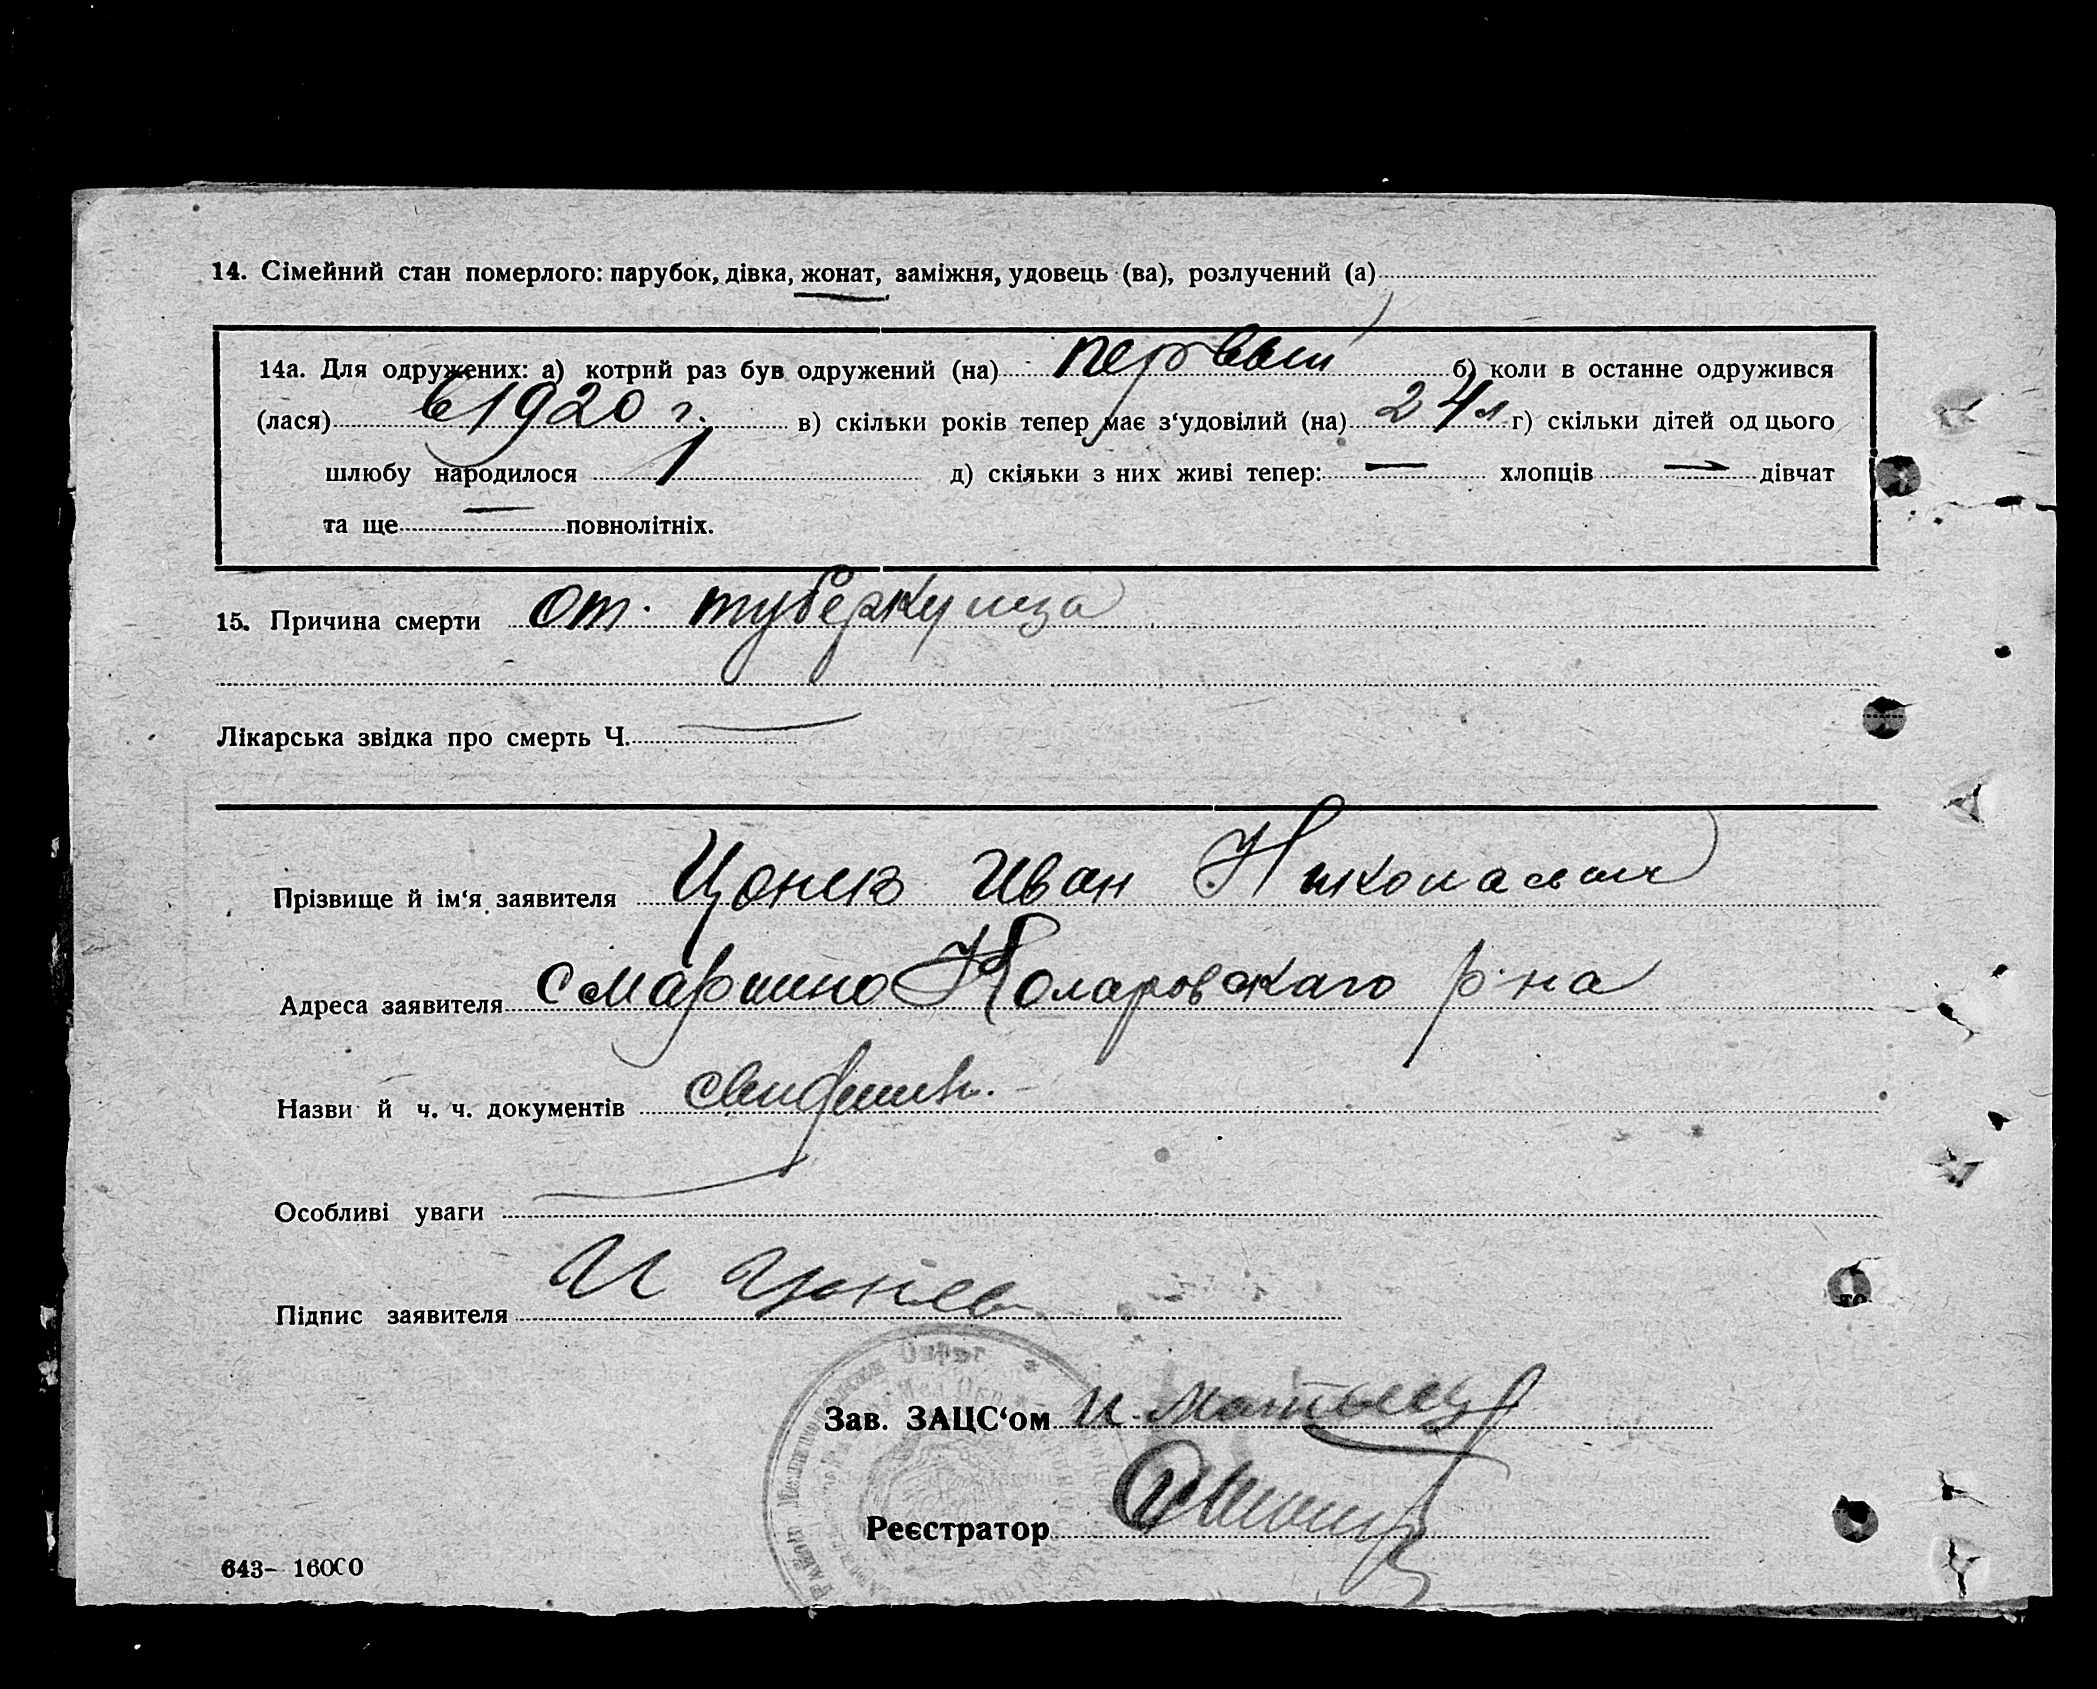 14. Сімейний стан померлого: парубок, дівка, жонат, заміжня, удовець (ва), розлучений (а)
14а. Для одружених: а) котрий раз був одружений (на) первый б) коли в останне одружився
(лася) в 1920 г. в) скільки років тепер має з‘удовілий (на) 24 л г) скільки дітей од цього
шлюбу народилося 1 д) скільки з них живі тепер: — хлопців — дівчат
та ще — повнолітніх.
15. Причина смерти от туберкулеза
Лікарська звідка про смерть Ч. —
Прізвище й ім‘я заявителя Цонев Иван Николаевич
Адреса заявителя Коларовскаго р-на
Назви й ч. ч. документів
Особливі уваги
Підпис заявителя И Цонев
Округ
Зав. ЗАЦС‘ом
Реєстратор
643– 16000